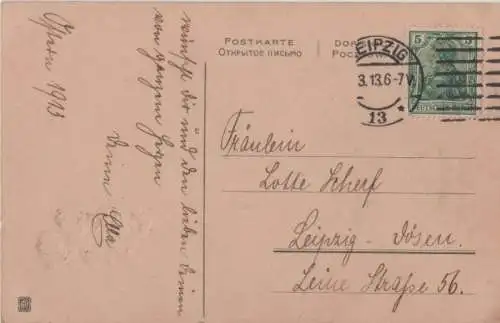 Ostern 1913
wünscht dir und den lieben Deinen
von ganzem Herzen
Deine Ella
POSTKARTE
ОТКРЫТОЕ ПИСЬМО
LEIPZIG
3.13.6-7V
13
5 5
Fräulein
Lotte Scherf
Leipzig-Dösen.
Leine Straße 56.